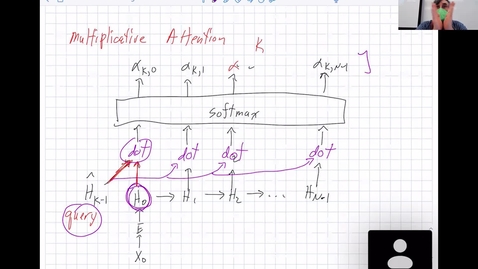 Multiplicative Attention K
α K,0 α K,1 α α K,N-1 ]
softmax
dot dot dot dot
Ĥ K-1 H0 → H1 → H2 → ... HN-1
query
E
X0